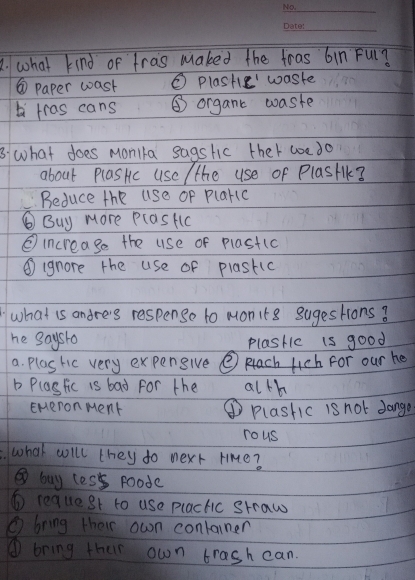 No.
Date:
2. what kind of tras maked the tras bin Full?
ⓐ paper wast ⓒ Plastic' waste
b. tras cans ⓓ organt waste
3. what does Monita sagstic thet we do
about Plastic use / the use of Plastik?
Beduce the use of Platic
ⓑ Buy More Plastic
ⓒ increase the use of Plastic
ⓓ ignore the use of plastic
what is andre's response to monit's sugestions?
he saysto plastic is good
a. Plastic very expensive ⓒ for our he
b Plastic is bad for the al th
Emeronment ⓓ plastic is not dange
rous
what will they do next time?
ⓐ buy less foode
ⓑ request to use plactic straw
ⓒ bring their own container
ⓓ bring their own trash can.